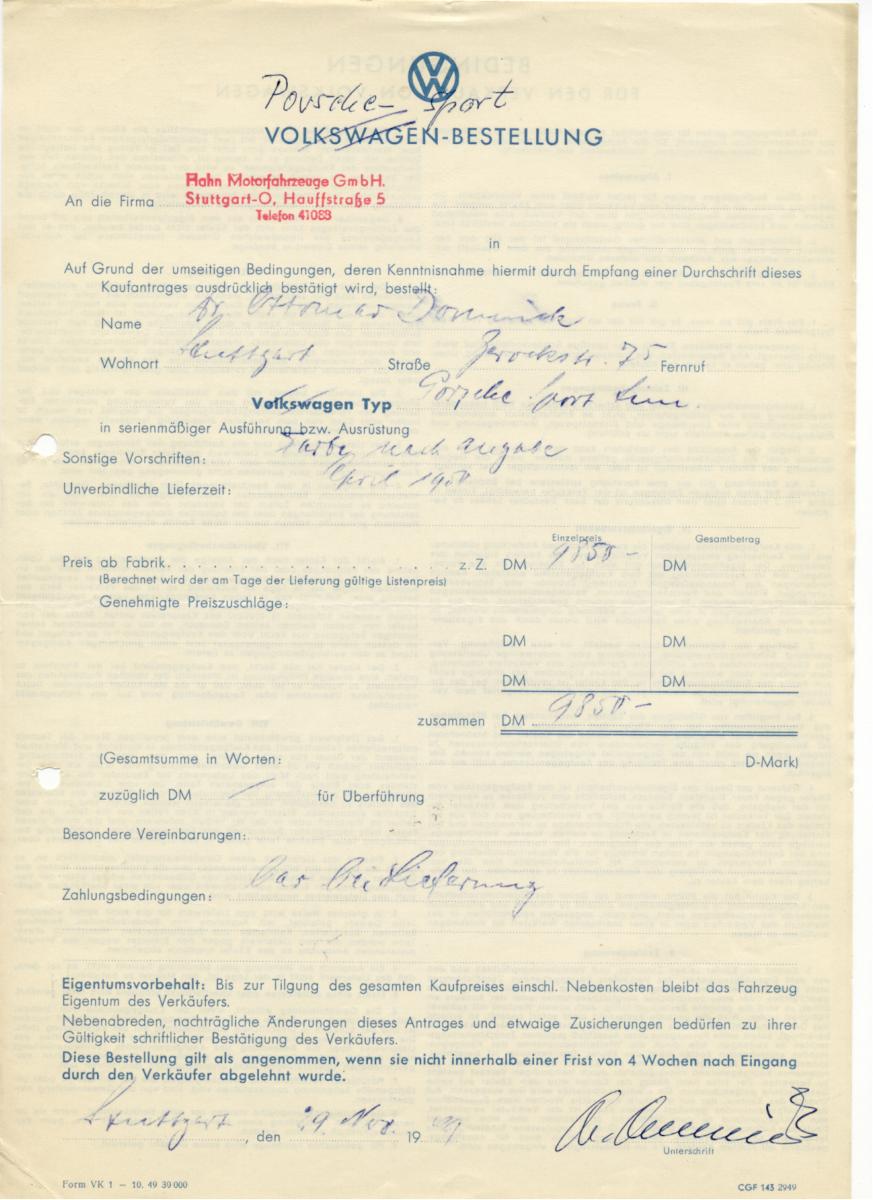 VW
Porsche- Sport
VOLKSWAGEN-BESTELLUNG
Hahn Motorfahrzeuge GmbH.
An die Firma Stuttgart-O, Hauffstraße 5
Telefon 41083
in
Auf Grund der umseitigen Bedingungen, deren Kenntnisnahme hiermit durch Empfang einer Durchschrift dieses
Kaufantrages ausdrücklich bestätigt wird, bestellt:
Name Dr. Ottomar Domnick
Wohnort Stuttgart Straße Gerockstr. 75 Fernruf
Volkswagen Typ Porsche Sport Lim.
in serienmäßiger Ausführung bzw. Ausrüstung
Sonstige Vorschriften: Farbe nach Angabe
Unverbindliche Lieferzeit: April 1950
Einzelpreis Gesamtbetrag
Preis ab Fabrik z. Z. DM 9850- DM
(Berechnet wird der am Tage der Lieferung gültige Listenpreis)
Genehmigte Preiszuschläge:
DM DM
DM DM
zusammen DM 9850-
(Gesamtsumme in Worten: D-Mark)
zuzüglich DM / für Überführung
Besondere Vereinbarungen:
Zahlungsbedingungen: bar bei Lieferung
Eigentumsvorbehalt: Bis zur Tilgung des gesamten Kaufpreises einschl. Nebenkosten bleibt das Fahrzeug
Eigentum des Verkäufers.
Nebenabreden, nachträgliche Änderungen dieses Antrages und etwaige Zusicherungen bedürfen zu ihrer
Gültigkeit schriftlicher Bestätigung des Verkäufers.
Diese Bestellung gilt als angenommen, wenn sie nicht innerhalb einer Frist von 4 Wochen nach Eingang
durch den Verkäufer abgelehnt wurde.
Stuttgart, den 29. Nov. 19 49
Unterschrift
Form VK 1 – 10. 49 30 000 CGF 143 2949